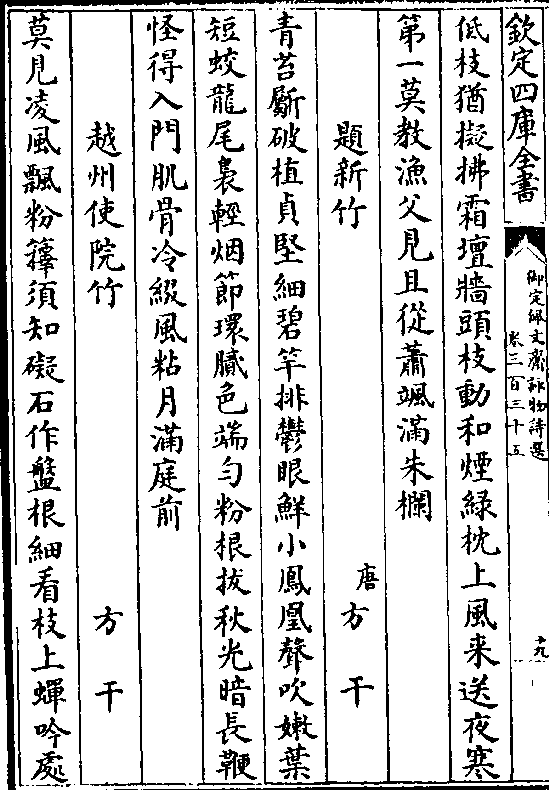 欽定四庫全書
御定佩文齋詠物詩選
卷三百三十五
十九
低枝猶擬拂霜壇牆頭枝動和煙綠枕上風来送夜寒
第一莫教漁父見且從蕭颯滿朱欄
題新竹
唐方干
青苔斸破植貞堅細碧竿排鬱眼鮮小鳳凰聲吹嫩葉
短蛟龍尾褭輕烟節環膩色端勻粉根拔秋光暗長鞭
怪得入門肌骨冷綴風粘月滿庭前
越州使院竹
方干
莫見凌風飄粉籜須知礙石作盤根細看枝上蟬吟處